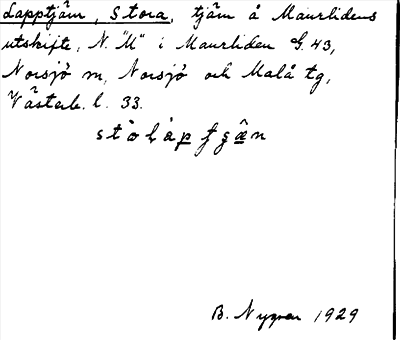 Lapptjärn, Stora, tjärn å Maurlidens
utskifte, N. "M" i Maurliden G. 43,
Norsjö sn, Norsjö och Malå tg,
Västerb. l. 33.
B. Nygren 1929